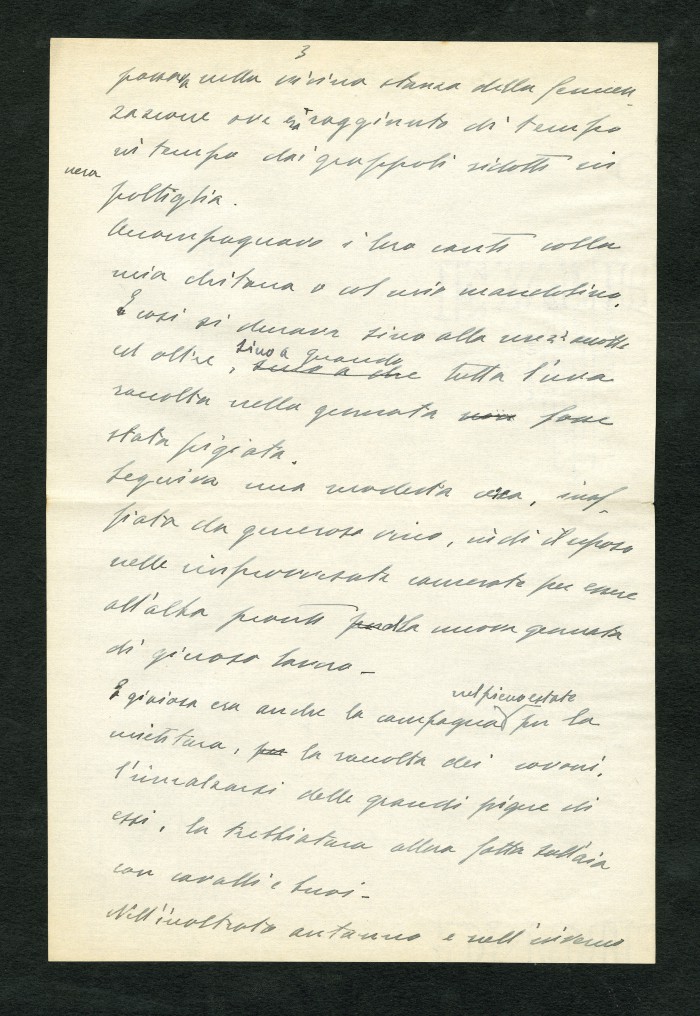 3
passava nella vicina stanza della fermen-
tazione ove era raggiunto di tempo
in tempo dai grappoli ridotti in
nera
poltiglia.
Accompagnavo i loro canti colla
mia chitarra o col mio mandolino.
E così si durava sino alla mezzanotte
ed oltre, sino a quando
sino a che tutta l'uva
raccolta nella giornata non fosse
stata pigiata.
Seguiva una modesta cena, inaf-
fiata da generoso vino, indi il riposo
nelle improvvisate camerate per essere
all'alba pronti per la nuova giornata
di gioioso lavoro -
nel pieno estate
E gioiosa era anche la campagna per la
mietitura, per la raccolta dei covoni,
l'innalzarsi delle grandi pigne di
essi, la trebbiatura allora fatta sull'aia
con cavalli e buoi -
Nell'inoltrato autunno e nell'inverno